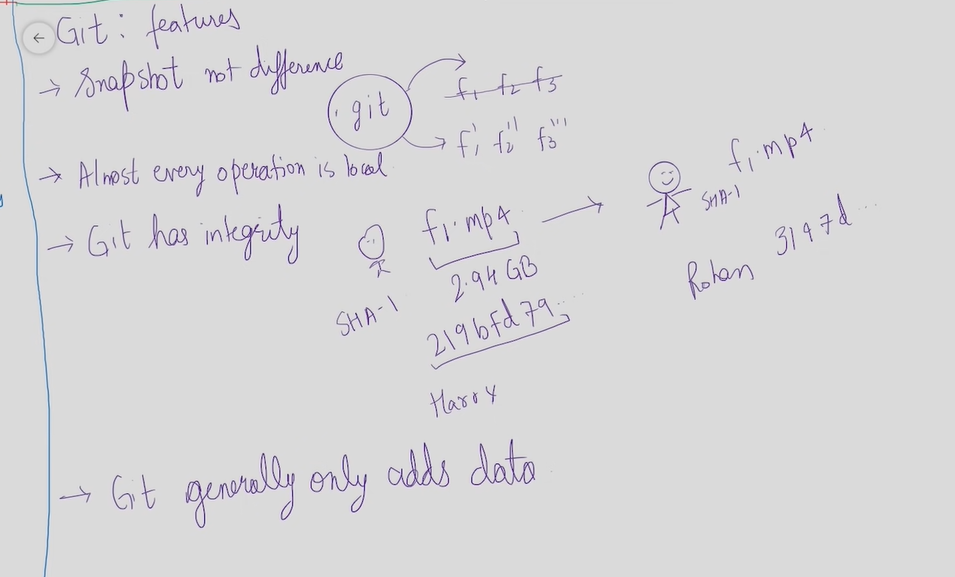 Git: features
→ Snapshot not difference
git
f1 f2 f3
f1' f2'' f3'''
→ Almost every operation is local
→ Git has integrity
f1.mp4 → f1.mp4
2.94 GB
SHA-1 SHA-1
219bfd79...
3197d...
Harry
Rohan
→ Git generally only adds data